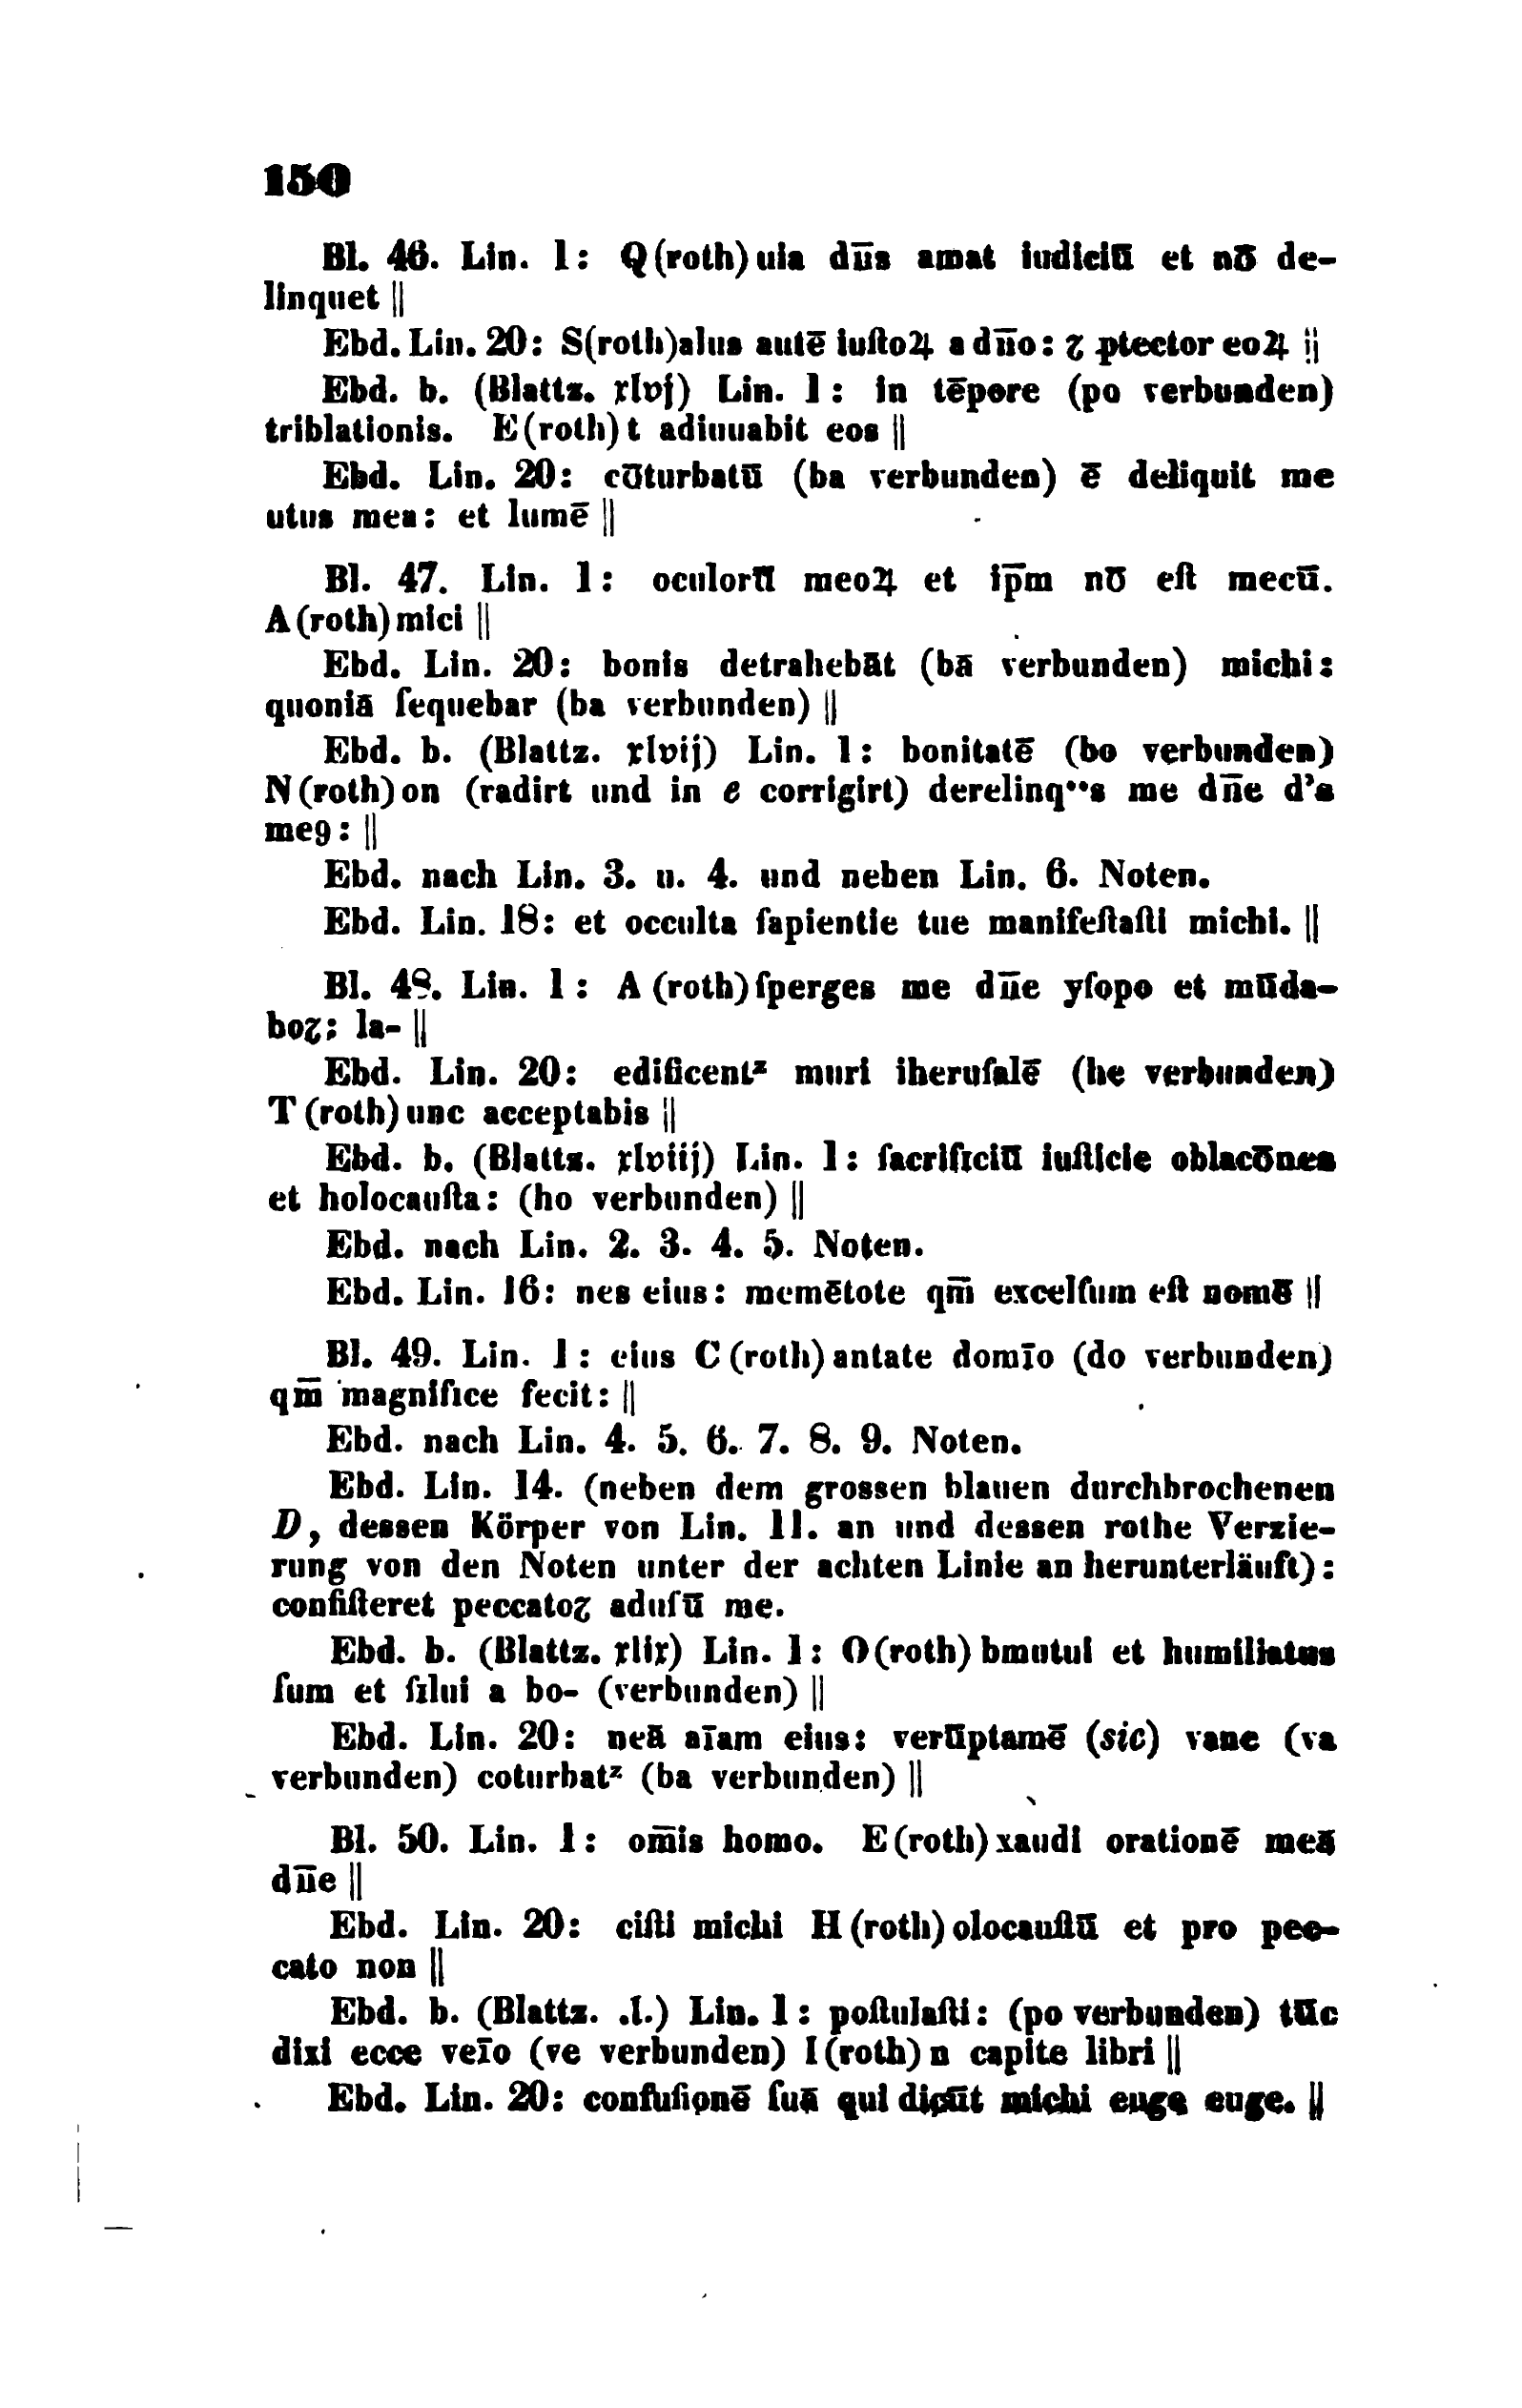 150
Bl. 46. Lin. 1: Q(roth)uia dn̄s amat iudiciū et nō de-
linquet ||
Ebd. Lin. 20: S(roth)alus autē iuſtoꝝ a dn̄o: ⁊ ꝓtector eoꝝ ||
Ebd. b. (Blattz. xlvj) Lin. 1: in tēpore (po verbunden)
triblationis. E(roth)t adiuuabit eos ||
Ebd. Lin. 20: cōturbatū (ba verbunden) ē deliquit me
utus mea: et lumē ||
Bl. 47. Lin. 1: oculorū meoꝝ et ip̄m nō eſt mecū.
A(roth)mici ||
Ebd. Lin. 20: bonis detrahebāt (bā verbunden) michi:
quoniā ſequebar (ba verbunden) ||
Ebd. b. (Blattz. xlvij) Lin. 1: bonitatē (bo verbunden)
N(roth)on (radirt und in e corrigirt) derelinq""s me dn̄e d's
meꝯ: ||
Ebd. nach Lin. 3. u. 4. und neben Lin. 6. Noten.
Ebd. Lin. 18: et occulta ſapientie tue manifeſtaſti michi. ||
Bl. 48. Lin. 1: A(roth)ſperges me dn̄e yſopo et mūda-
boꝛ: la- ||
Ebd. Lin. 20: edificentᶻ muri iheruſalē (he verbunden)
T(roth)unc acceptabis ||
Ebd. b. (Blattz. xlviij) Lin. 1: ſacrificiū iuſticie oblacōnes
et holocauſta: (ho verbunden) ||
Ebd. nach Lin. 2. 3. 4. 5. Noten.
Ebd. Lin. 16: nes eius: memētote qm̄ excelſum eſt nomē ||
Bl. 49. Lin. 1: eius C(roth)antate domīo (do verbunden)
qm̄ magnifice fecit: ||
Ebd. nach Lin. 4. 5. 6. 7. 8. 9. Noten.
Ebd. Lin. 14. (neben dem grossen blauen durchbrochenen
D, dessen Körper von Lin. 11. an und dessen rothe Verzie-
rung von den Noten unter der achten Linie an herunterläuft):
conſiſteret peccatoꝛ aduſū me.
Ebd. b. (Blattz. xlix) Lin. 1: O(roth)bmutui et humiliatus
ſum et ſilui a bo- (verbunden) ||
Ebd. Lin. 20: neā aīam eius: verūptamē (sic) vane (va
verbunden) coturbatᶻ (ba verbunden) ||
Bl. 50. Lin. 1: om̄is homo. E(roth)xaudi orationē meā
dn̄e ||
Ebd. Lin. 20: ciſti michi H(roth)olocauſtū et pro pec-
cato non ||
Ebd. b. (Blattz. .l.) Lin. 1: poſtulaſti: (po verbunden) tūc
dixi ecce veīo (ve verbunden) I(roth)n capite libri ||
Ebd. Lin. 20: confuſionē ſuā qui dicūt michi euge euge. ||